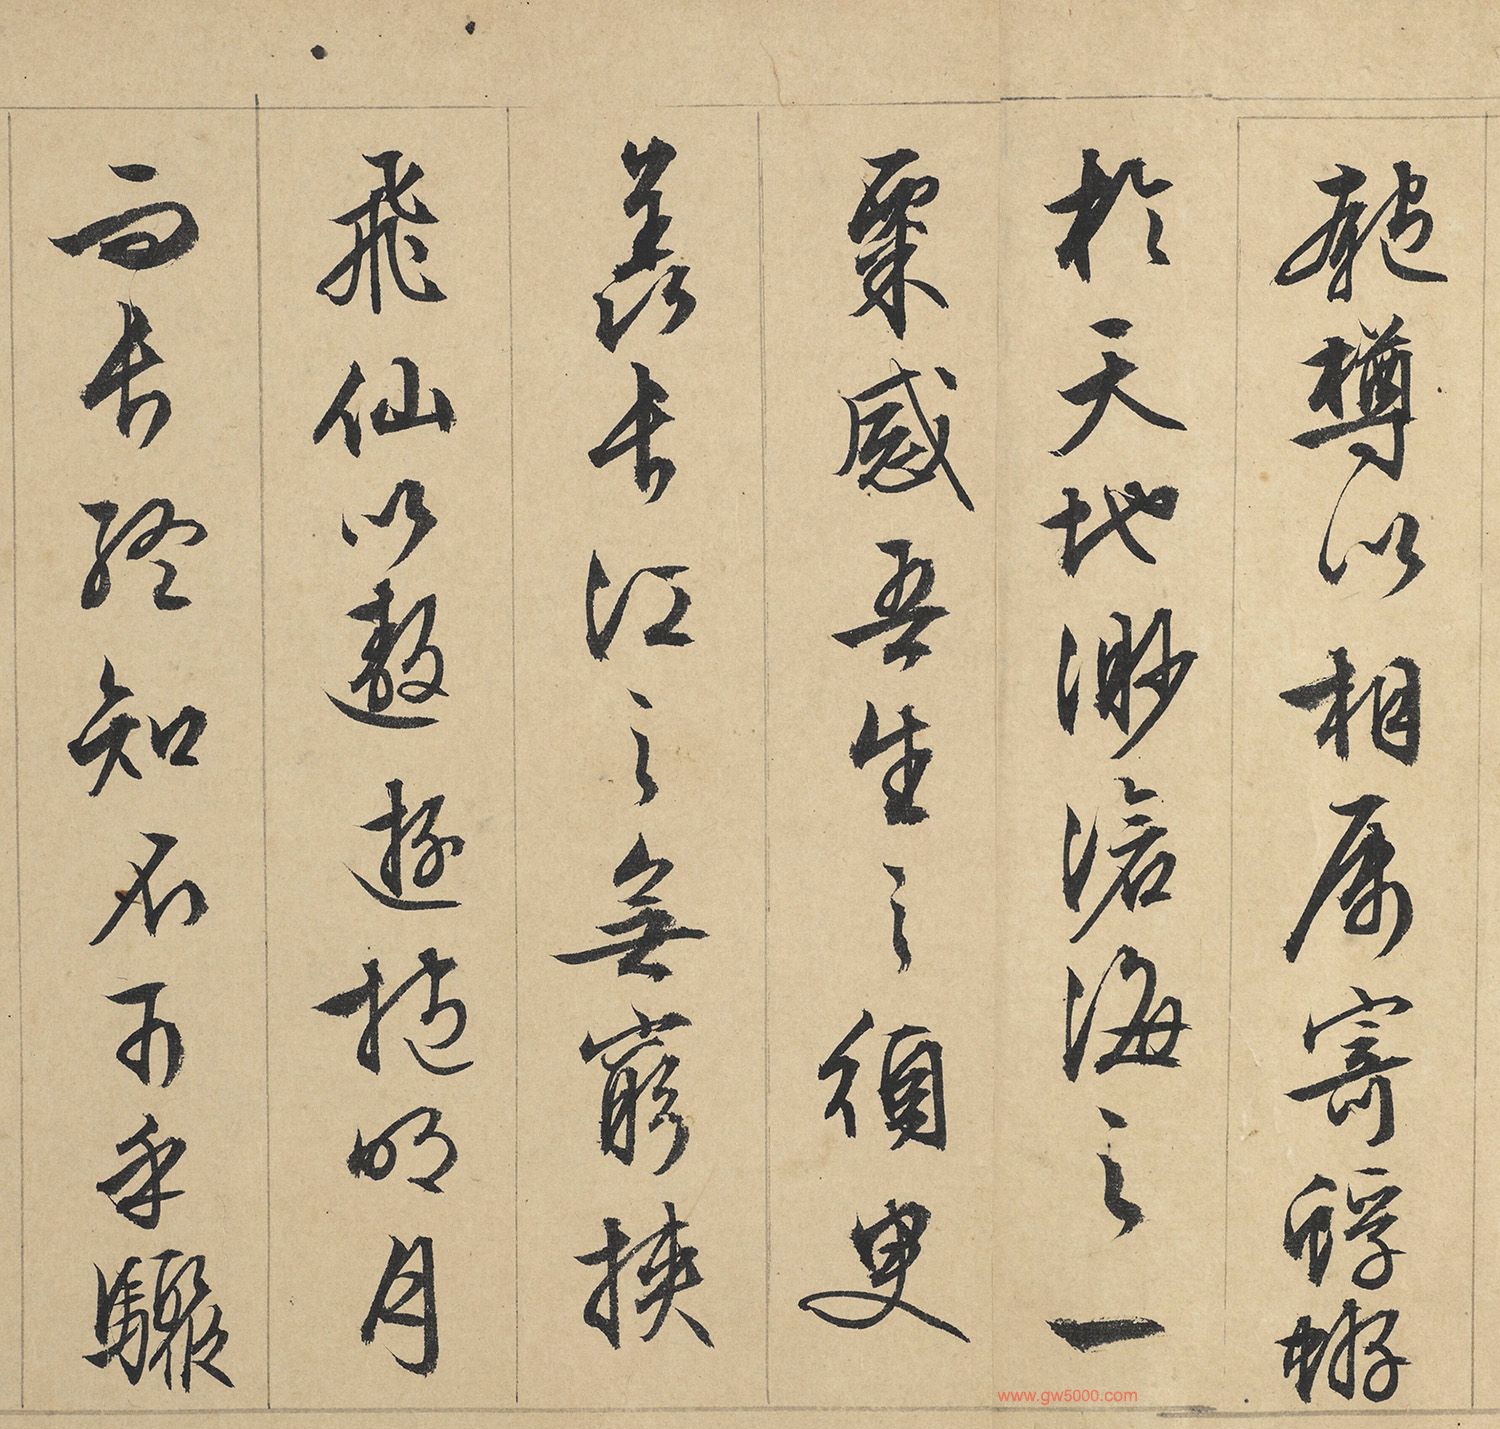 匏樽以相属寄蜉蝣
於天地渺滄海之一
粟感吾生之須臾
羨長江之無窮挾
飛仙以遨遊抱明月
而長終知不可乎驟
www.gw5000.com